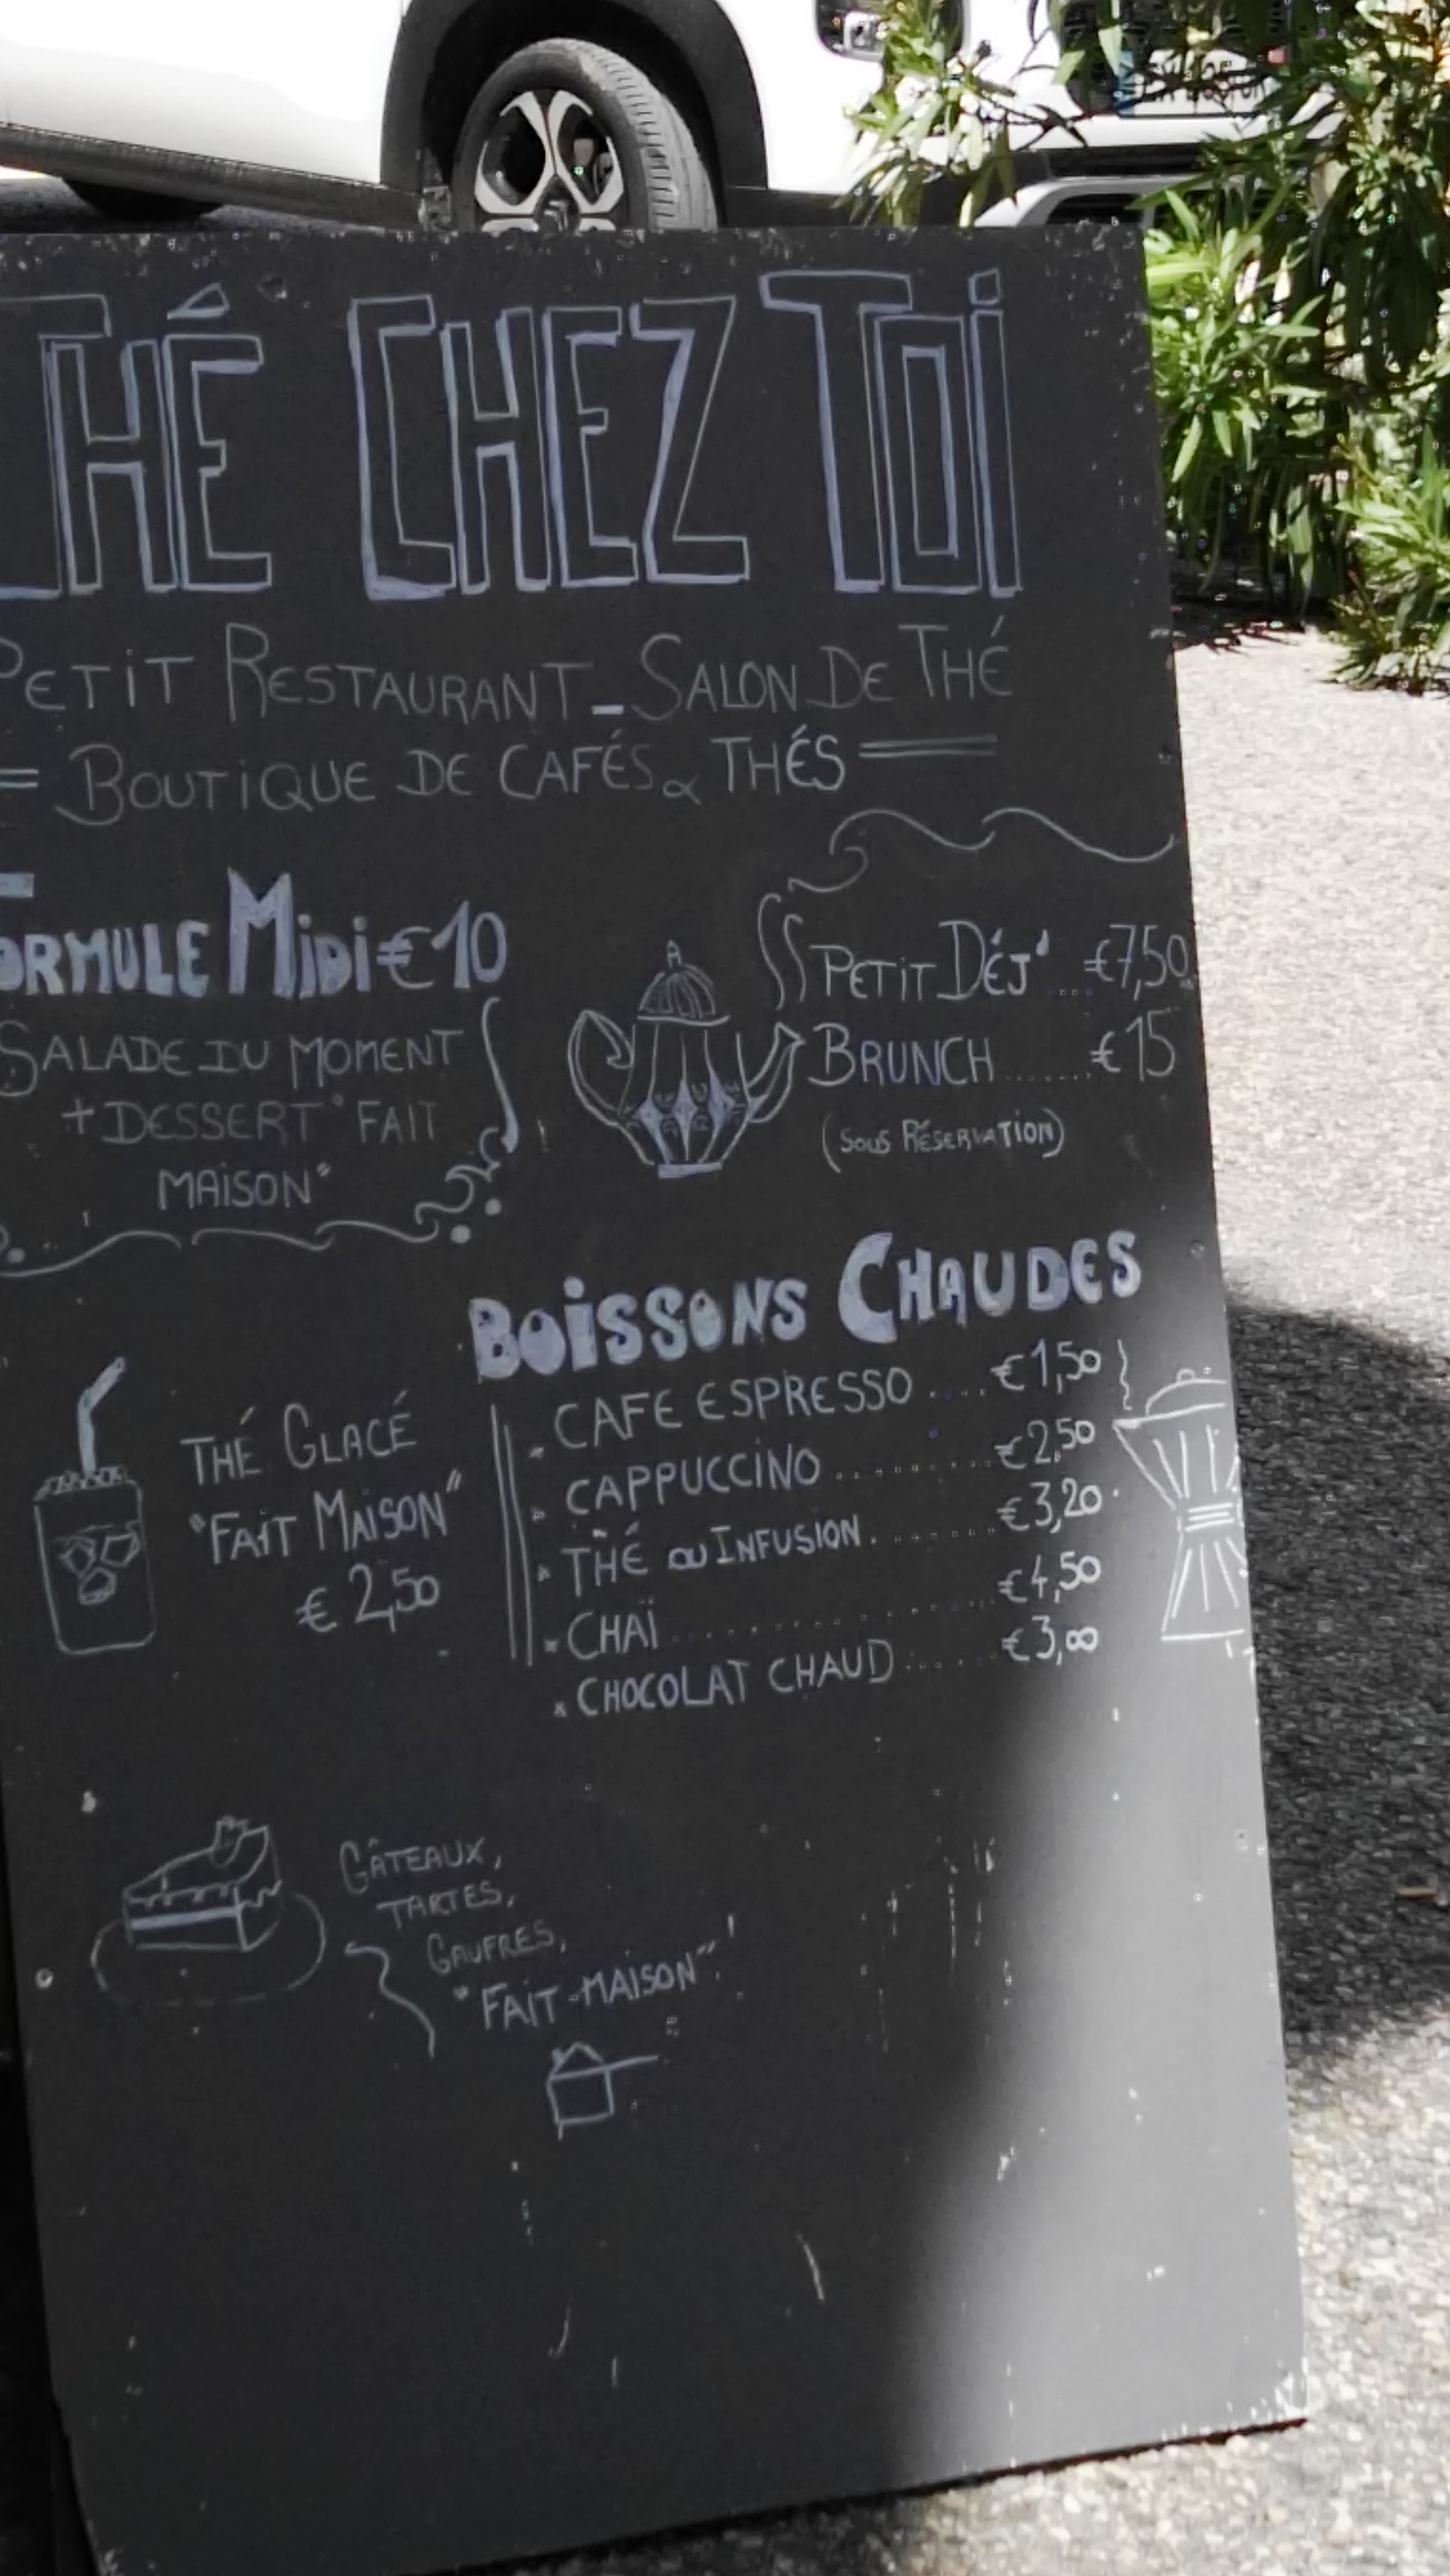 THÉ CHEZ TOI
PETIT RESTAURANT - SALON DE THÉ
= BOUTIQUE DE CAFÉS & THÉS =
FORMULE MIDI €10
SALADE DU MOMENT
+ DESSERT "FAIT
MAISON"
PETIT DÉJ' .... €7,50
BRUNCH ....... €15
(SOUS RÉSERVATION)
THÉ GLACÉ
"FAIT MAISON"
€ 2,50
BOISSONS CHAUDES
CAFE ESPRESSO ..... €1,50
CAPPUCCINO .......... €2,50
THÉ OU INFUSION ......... €3,20
CHAÏ .................. €4,50
CHOCOLAT CHAUD ...... €3,00
GÂTEAUX,
TARTES,
GAUFRES,
"FAIT-MAISON"